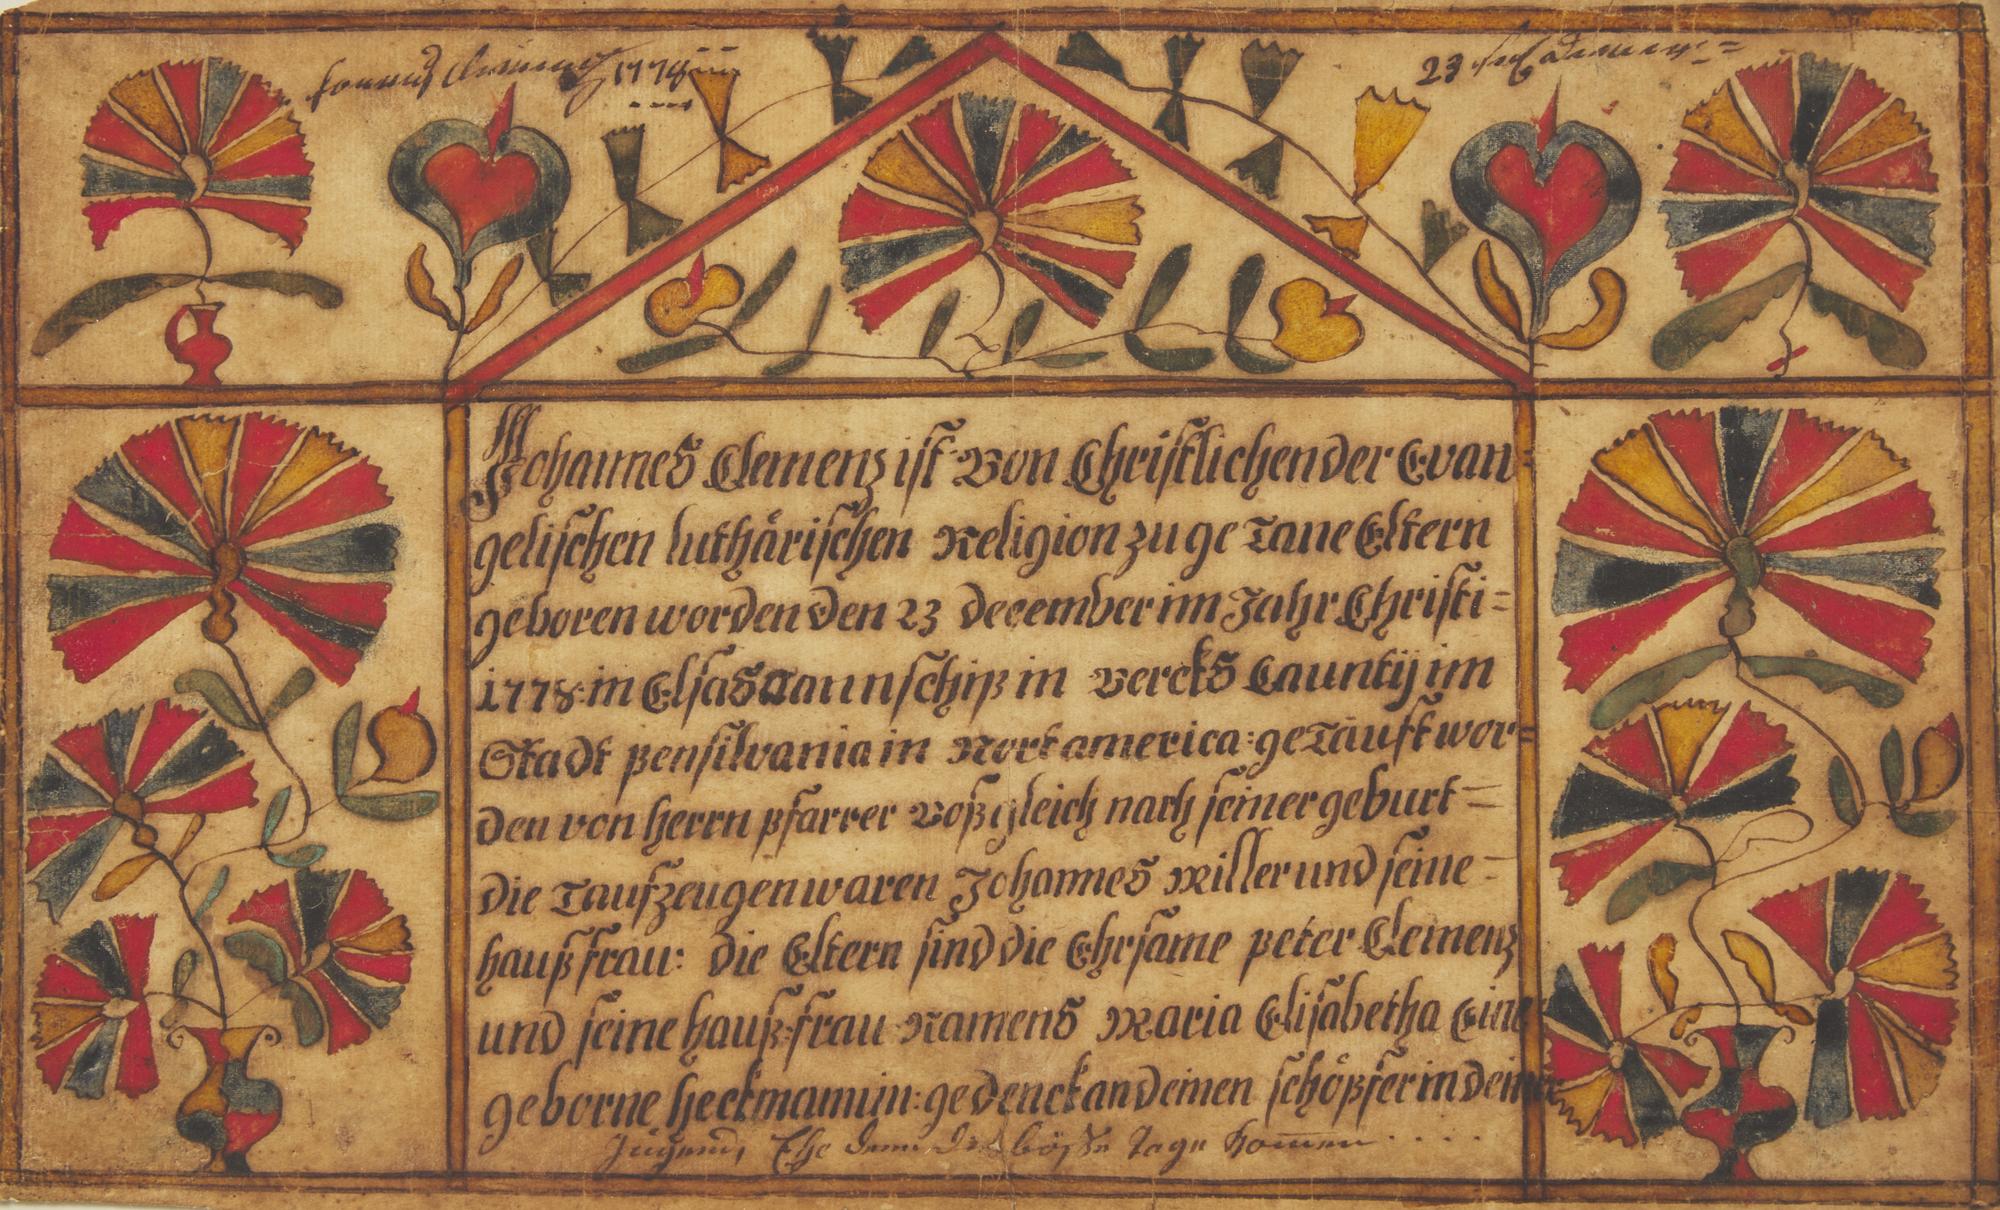 1778
23
Johannes Clemenz ist Von Christlichen der Evan=
gelischen luthärischen Religion zu ge Tane Eltern
geboren worden den 23 december im Jahr Christi=
1778: in Elsas Taunschip in Bercks Cauntÿ im
Stadt pensilvania in Nort america: geTäuft wor=
den von herrn pfarrer Voß gleich nach seiner geburt=
die Taufzeugen waren Johannes Miller und seine=
hauß frau: die Eltern sind die Ehrsame peter Clemenz
und seine hauß:frau Namens Maria Elisabetha Eine
geborne heckmannin: gedenck an deinen schöpfer in deiner
Jugend, Ehe denn die bösse Tage kommen . . . .